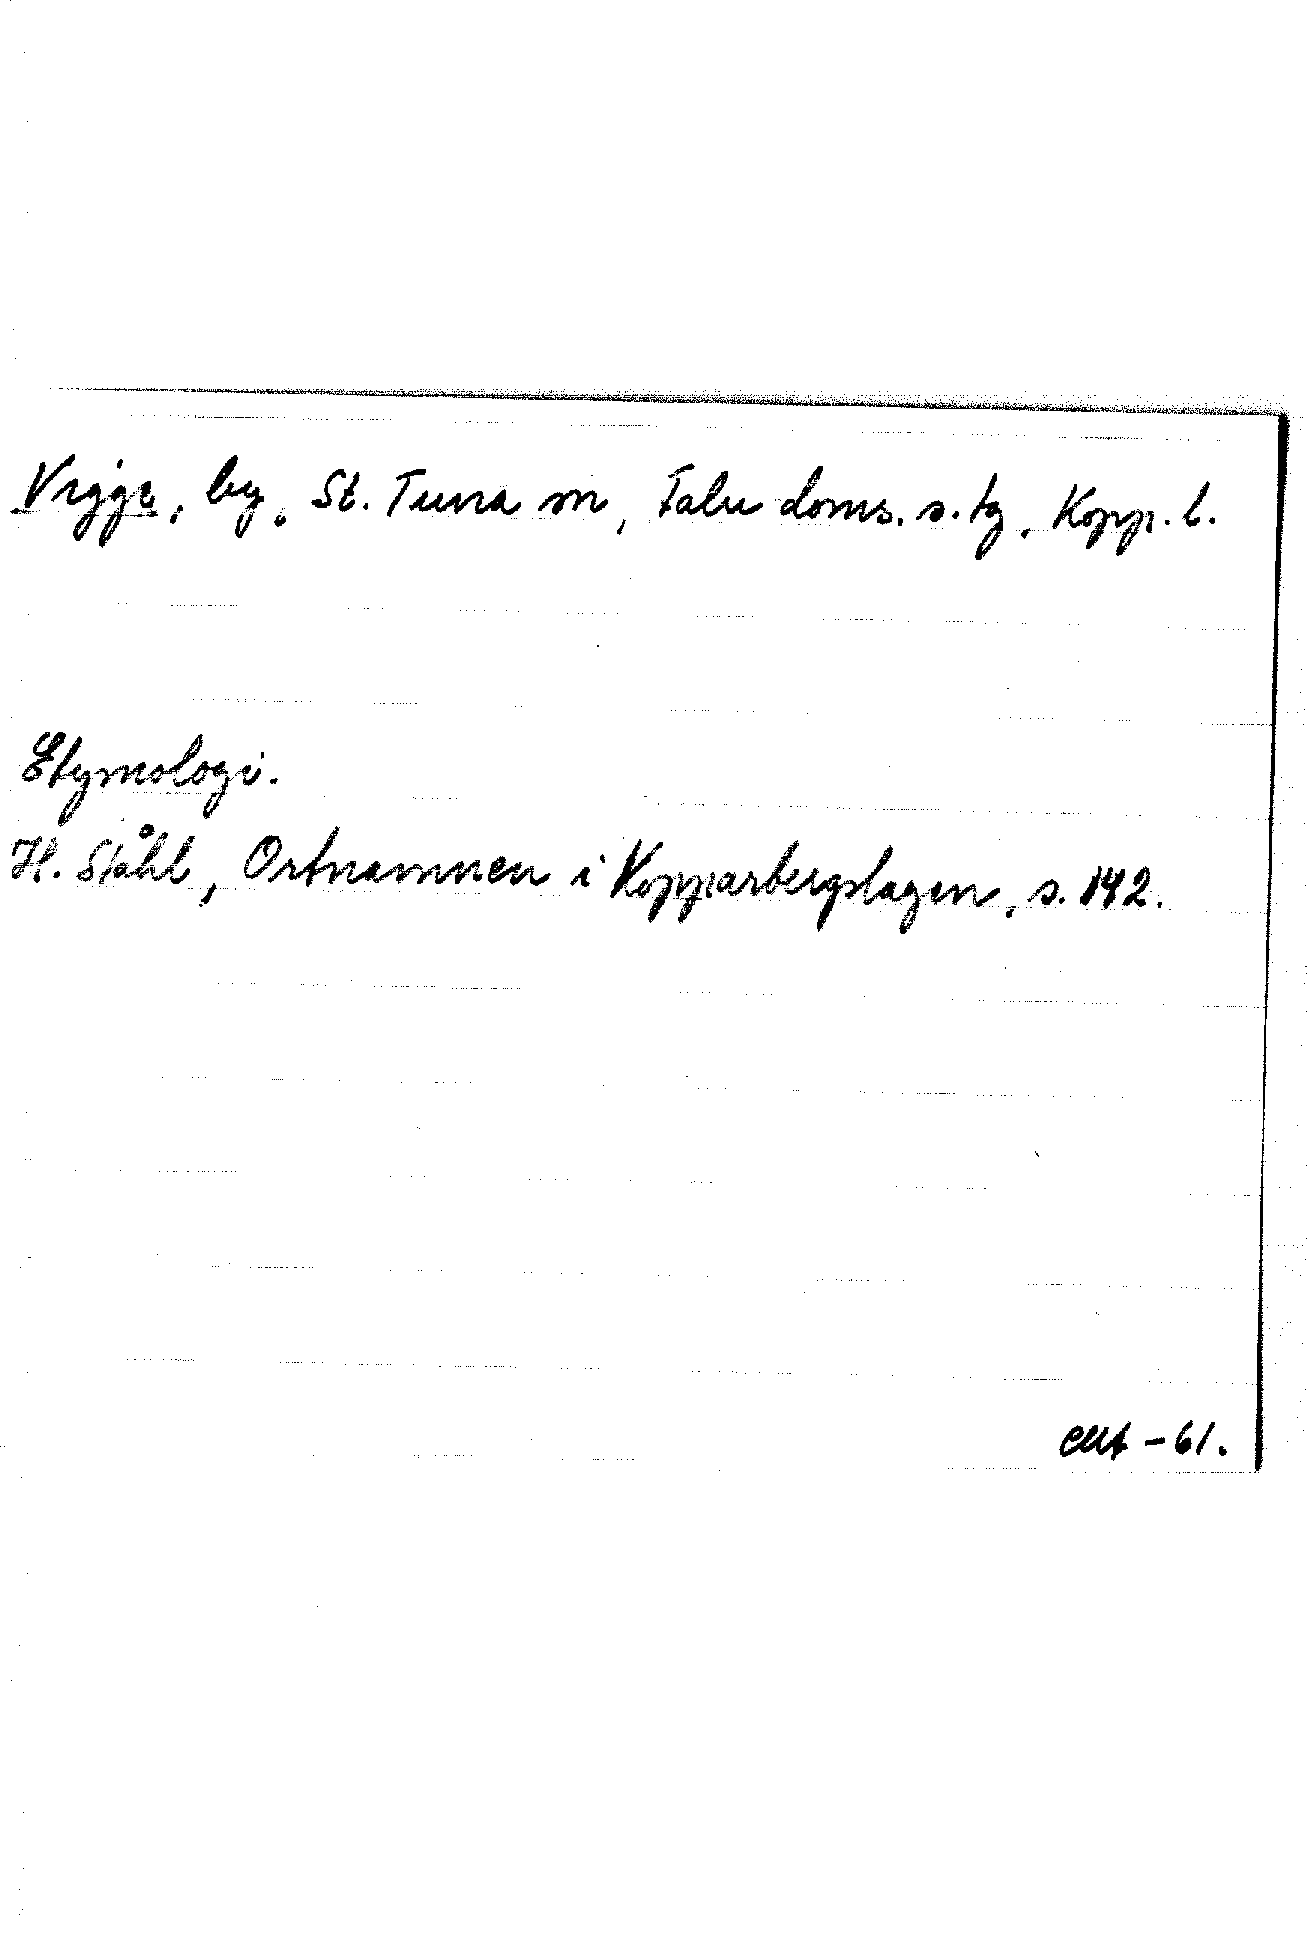 Vigge, by, St. Tuna sn, Falu doms. s. tg, Kopp. l.
Etymologi.
H. Ståhl, Ortnamnen i Kopparbergslagen, s. 142.
-61.